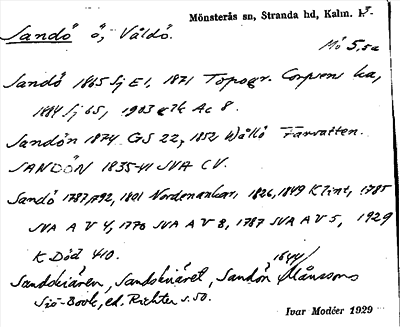 Mönsterås sn, Stranda hd, Kalm. l.
Sandö ö, Våldö.
Mö 5,5a
Sandö 1865 Sj E1, 1871 Topogr. Corpsens ka,
1894 Sj 65, 1903 Ac 8.
Sandön 1874 GS 22, 1852 Wållö Farvatten.
SANDÖN 1835-41 SVA CV.
Sandö 1787,1792, 1801 Nordenankar, 1826, 1849 Klint, 1785
SVA A V 4, 1770 SVA A V 8, 1787 SVA A V 5, 1929
K Död 410.
Sandskiären, Sandskiäret, Sandön 1644 Månssons
Siö-Book, ed. Richter s. 50.
Ivar Modéer 1929